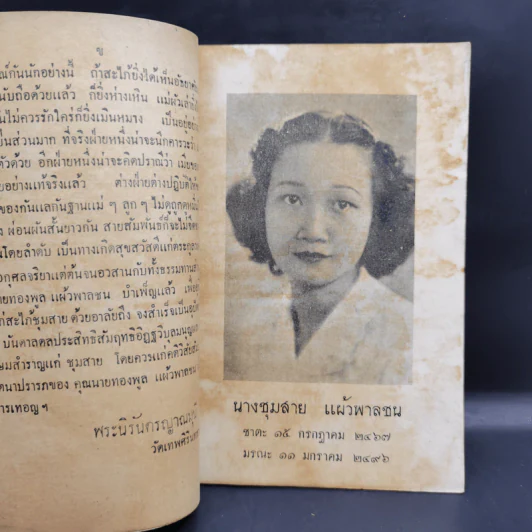 ฃู
ณ์กันนักอย่างนี้ ถ้าสะไภ้ยิ่งได้เห็น
นับถือด้วยแล้ว ก็ยิ่งห่างเหิน แม่ผัว
นไม่ควรรักใคร่ก็ยิ่งเมินหมาง
ป็นส่วนมาก ที่จริงฝ่ายหนึ่งน่าจะนึก
ตัวด้วย อีกฝ่ายหนึ่งน่าจะคิดปราณีว่า
อย่างแท้จริงแล้ว ต่างฝ่ายต่างปฏิบัติ
ของกันแลกันฐานแม่ ๆ ลูก ๆ
ผ่อนผันสั้นยาวกัน สายสัมพันธ์ก็
นโดยลำดับ เป็นทางเกิดสุขสวัสดิ์แก่
อกุศลจริยาแต่ต้นจนอวสานกับทั้งธรรมทาน
ายทองพูล แผ้วพาลชน บำเพ็ญแล้ว
ก่สะไภ้ชุมสาย ด้วยอาลัยถึง จงสำเร็จ
บันดาลดลประสิทธิสัมฤทธิอิฏฐวิบุลมนุญผล
ษมสำราญแก่ ชุมสาย โดยควรแก่คติวิสัย
ตนาปรารภของ คุณนายทองพูล แผ้วพาลชน
ารเทอญ ฯ
พระนิรันตรญาณมุนี
วัดเทพศิรินทร
นางชุมสาย แผ้วพาลชน
ชาตะ ๑๕ กรกฎาคม ๒๔๖๗
มรณะ ๑๑ มกราคม ๒๔๙๖